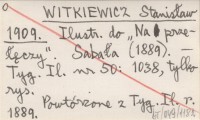 WITKIEWICZ Stanisław
1909. Ilustr. do "Na prze-
łęczy". Sabała (1889). —
Tyg. Il. nr 50: 1038, tylko
rys.
Powtórzone z Tyg. Il. r.
1889.